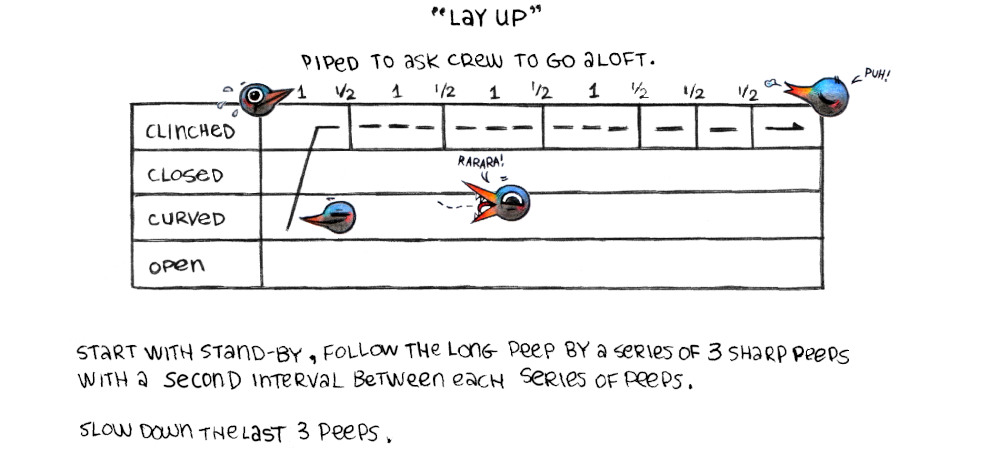 "LAY UP"
PIPED TO ASK CREW TO GO ALOFT.
1 1/2 1 1/2 1 1/2 1 1/2 1/2 1/2 PUH!
CLINCHED
CLOSED
RARARA!
CURVED
OPEN
START WITH STAND-BY, FOLLOW THE LONG PEEP BY A SERIES OF 3 SHARP PEEPS
WITH A SECOND INTERVAL BETWEEN EACH SERIES OF PEEPS.
SLOW DOWN THE LAST 3 PEEPS.